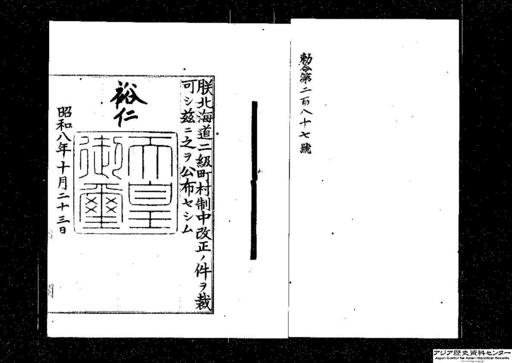 勅令第二百八十七號
朕北海道二級町村制中改正ノ件ヲ裁
可シ茲ニ之ヲ公布セシム
裕仁
天皇
御璽
昭和八年十月二十三日
アジア歴史資料センター
Japan Center for Asian Historical Records